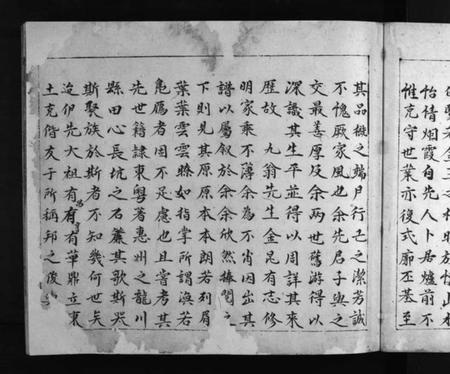 既堅若金三之
怡情烟霞自先人卜居爐前不
惟克守世業亦後式廓丕基至
其品概之端月行己之潔芳誠
不愧厥家風也余先君子與之
交最善厚及余兩世舊游得以
深識其生平並得以周詳其來
歷故 九翁先生金昆有志修
明家乘不薄余為不肖因出其
譜以屬敘於余余欣然捧閱之
下則見其原原本本朗若列眉
葉葉雲雲瞭如指掌所謂渙若
鳬鴈者因不足慮也且嘗考其
先世籍隸東粵著惠州之龍川
縣田心長坑之石簾其歌斯哭
斯聚族於斯者不知幾何世矣
迨伊先大祖有 有華鼎立東
土克偕友于所稱邦之俊